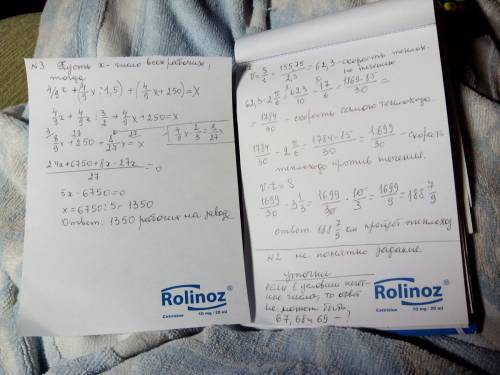 N3 Пусть x - число всех рабочих,
тогда
4/9 x + (4/9 x : 1,5) + (4/9 x + 250) = x
4/9 x + 4/9 x : 3/2 + 4/9 x + 250 = x
8/9 x + 250 + 8/27 x = x
4/9 x · 2/3 = 8/27
24x + 6750 + 8x - 27x / 27 = 0
5x - 6750 = 0
x = 6750 : 5 = 1350
Ответ: 1350 рабочих на заводе
Rolinoz
Cetirizine 10 mg / 20 ml
V = S/t = 155,75 / 2,5 = 62,3 - скорость теплох.
по течению
= 1784/30 - скорость самого теплохода
1784/30 - 2 5/6 = 1784-85 / 30 = 1699/30 - скорость
теплохода против течения.
v·t = S
1699/30 · 3 1/3 = 1699/30 · 10/3 = 1699/9 = 188 7/9
ответ 188 7/9 км пройдет теплоход
N2 не понятно задание.
уточни
если в условии
числа, то ответ
не может быть
67, 68 и 69
Rolinoz
Cetirizine 10 mg / 20 ml